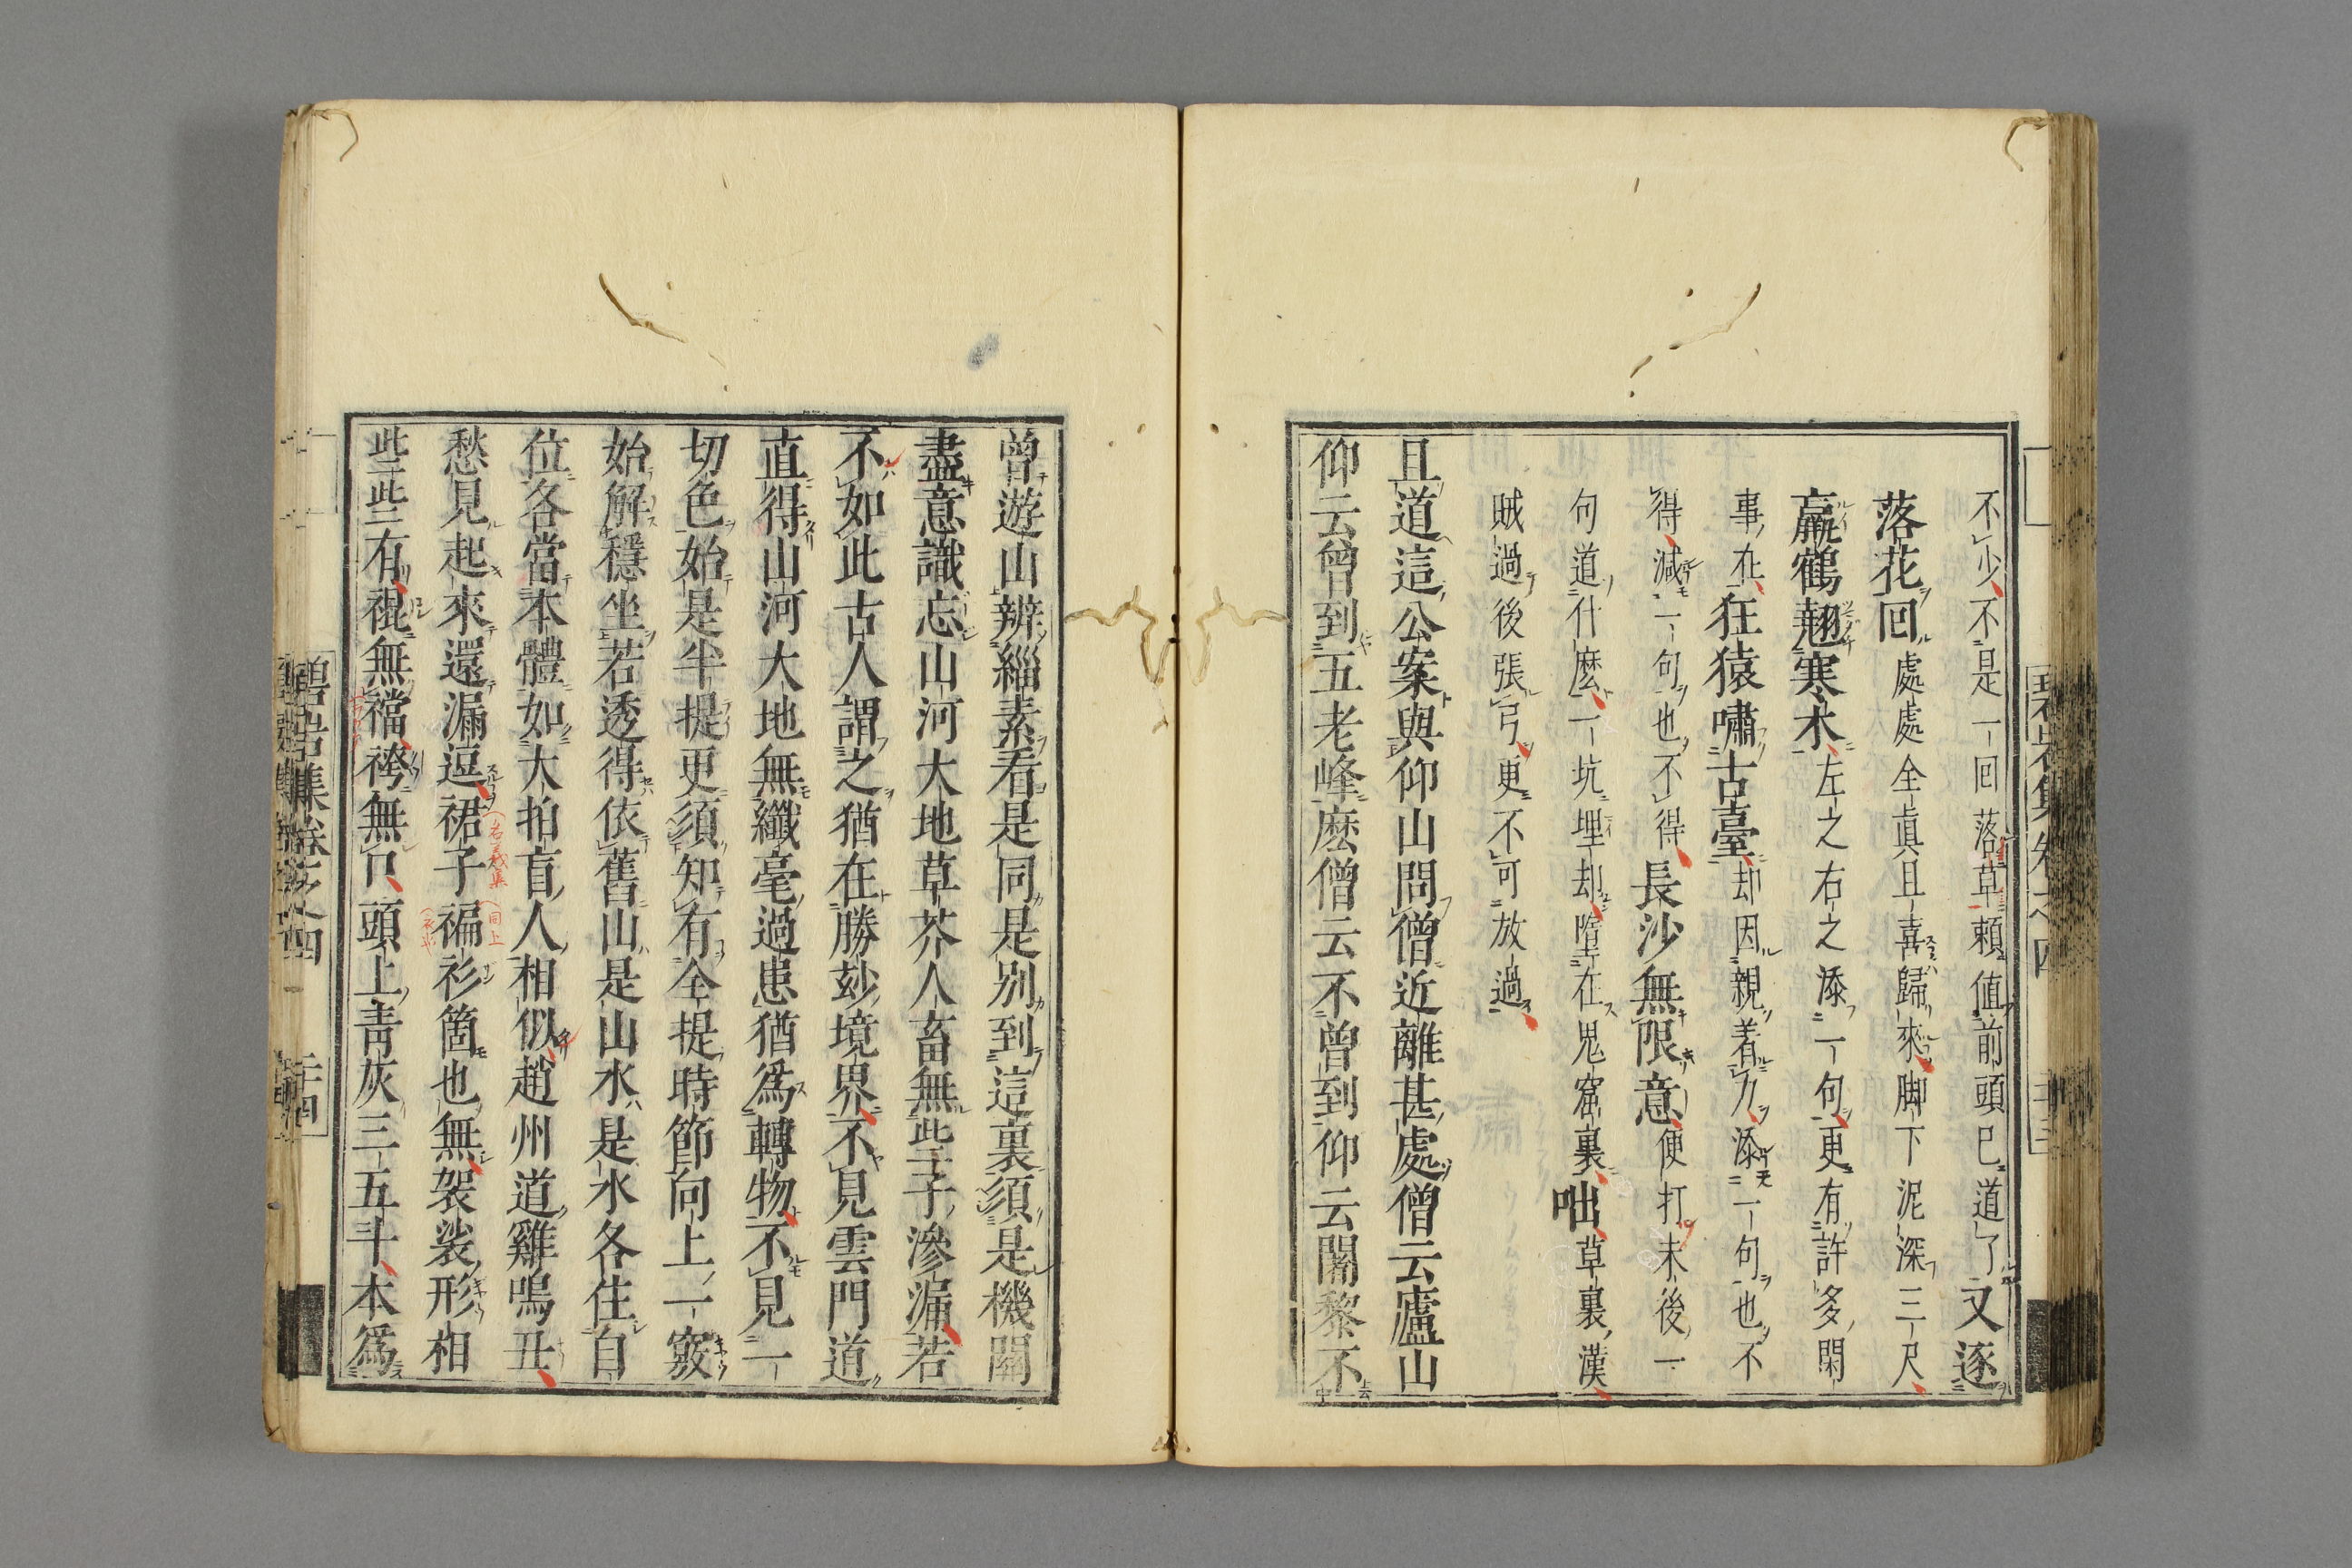 不少不是一回落草賴値前頭已道了又逐
落花回處處全眞且喜歸來脚下泥深三尺
羸鶴翹寒木左之右之添一句更有許多閑
事在狂猿嘯古臺却因親着力添一句也不
得減一句也不得長沙無限意便打末後一
句道什麽一坑埋却墮在鬼窟裏咄草裏漢
賊過後張弓更不可放過
且道這公案與仰山問僧近離甚處僧云廬山
仰云曾到五老峰麽僧云不曾到仰云闍黎不
曾遊山辨緇素看是同是別到這裏須是機關
盡意識忘山河大地草芥人畜無些子滲漏若
不如此古人謂之猶在勝玅境界不見雲門道
直得山河大地無纖毫過患猶爲轉物不見一
切色始是半提更須知有全提時節向上一竅
始解穩坐若透得依舊山是山水是水各住自
位各當本體如大拍盲人相似趙州道雞鳴丑
愁見起來還漏逗裙子褊衫箇也無袈裟形相
些些有裩無襠袴無口頭上靑灰三五斗本爲
碧岩集卷之四
二十四